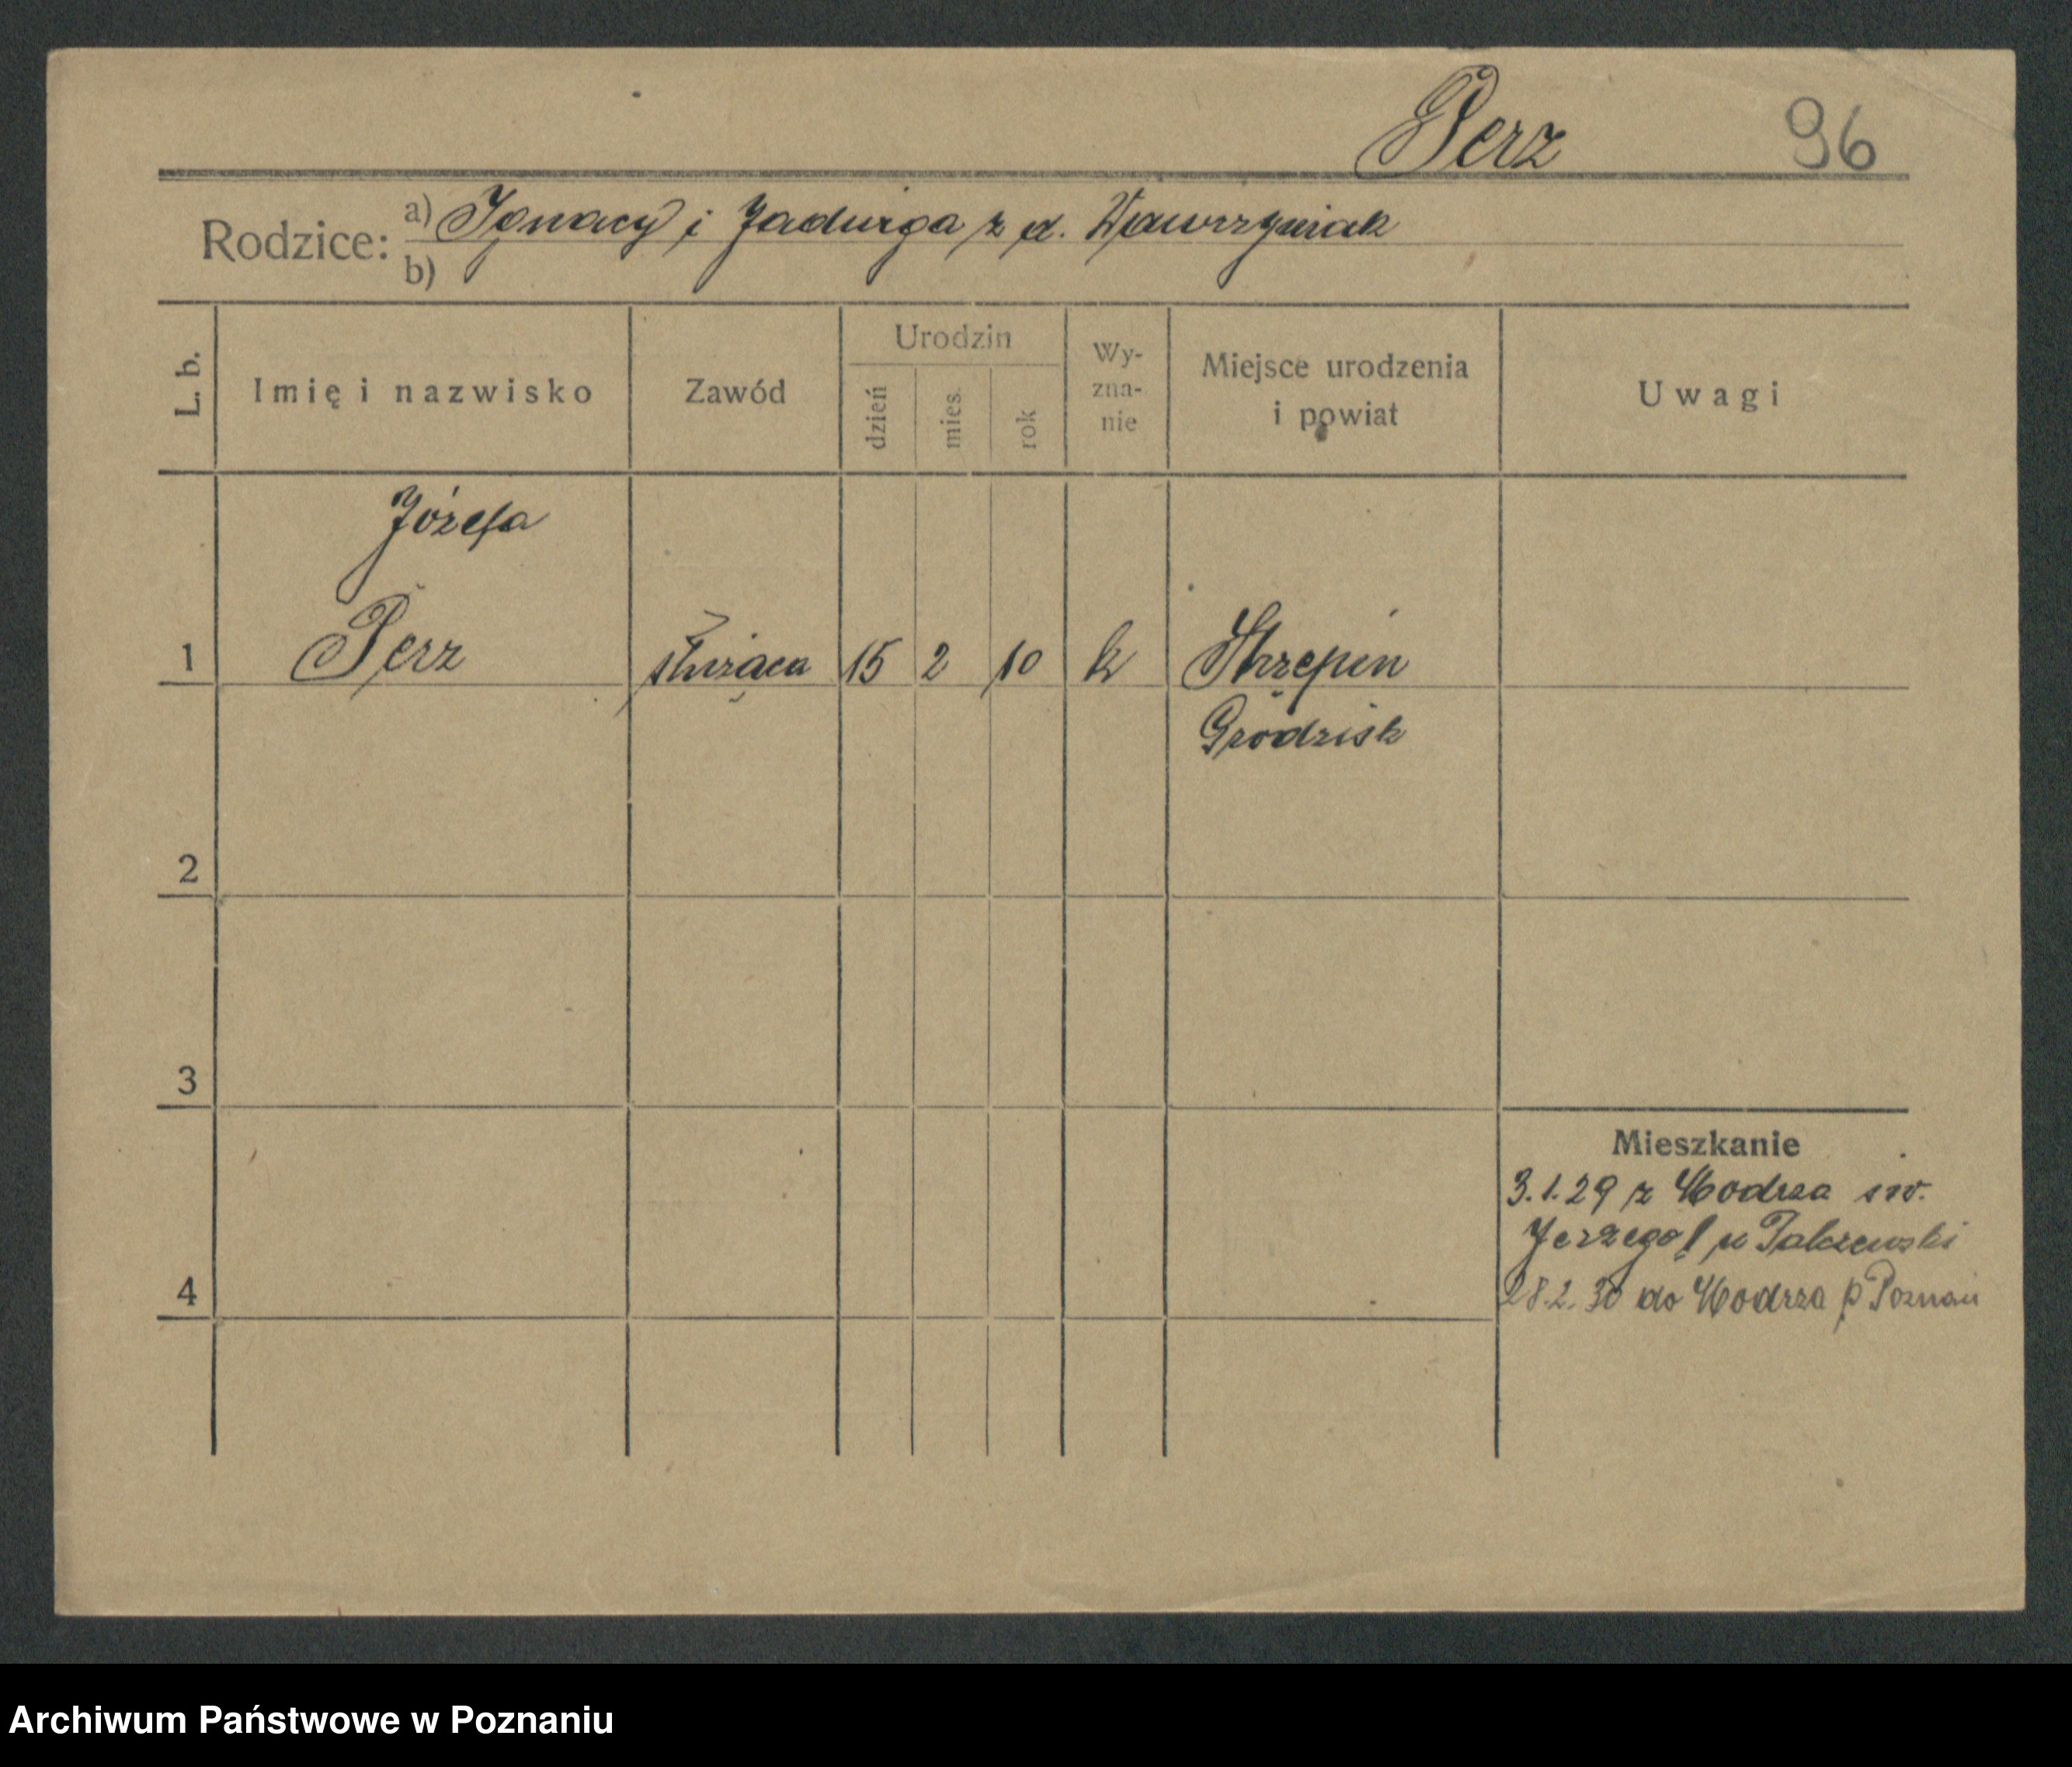 Perz 96
Rodzice: a) Ignacy i Jadwiga z d. Wawrzyniak
b)
L. b. Imię i nazwisko Zawód Urodzin dzień mies. rok Wy-zna-nie Miejsce urodzenia i powiat Uwagi
Józefa
1 Perz służąca 15 2 10 k Strzępin
Grodzisk
2
3
Mieszkanie
3.1.29 z Modrza św.
Jerzego u
4 28.2.30 do Modrza p Poznań
Archiwum Państwowe w Poznaniu